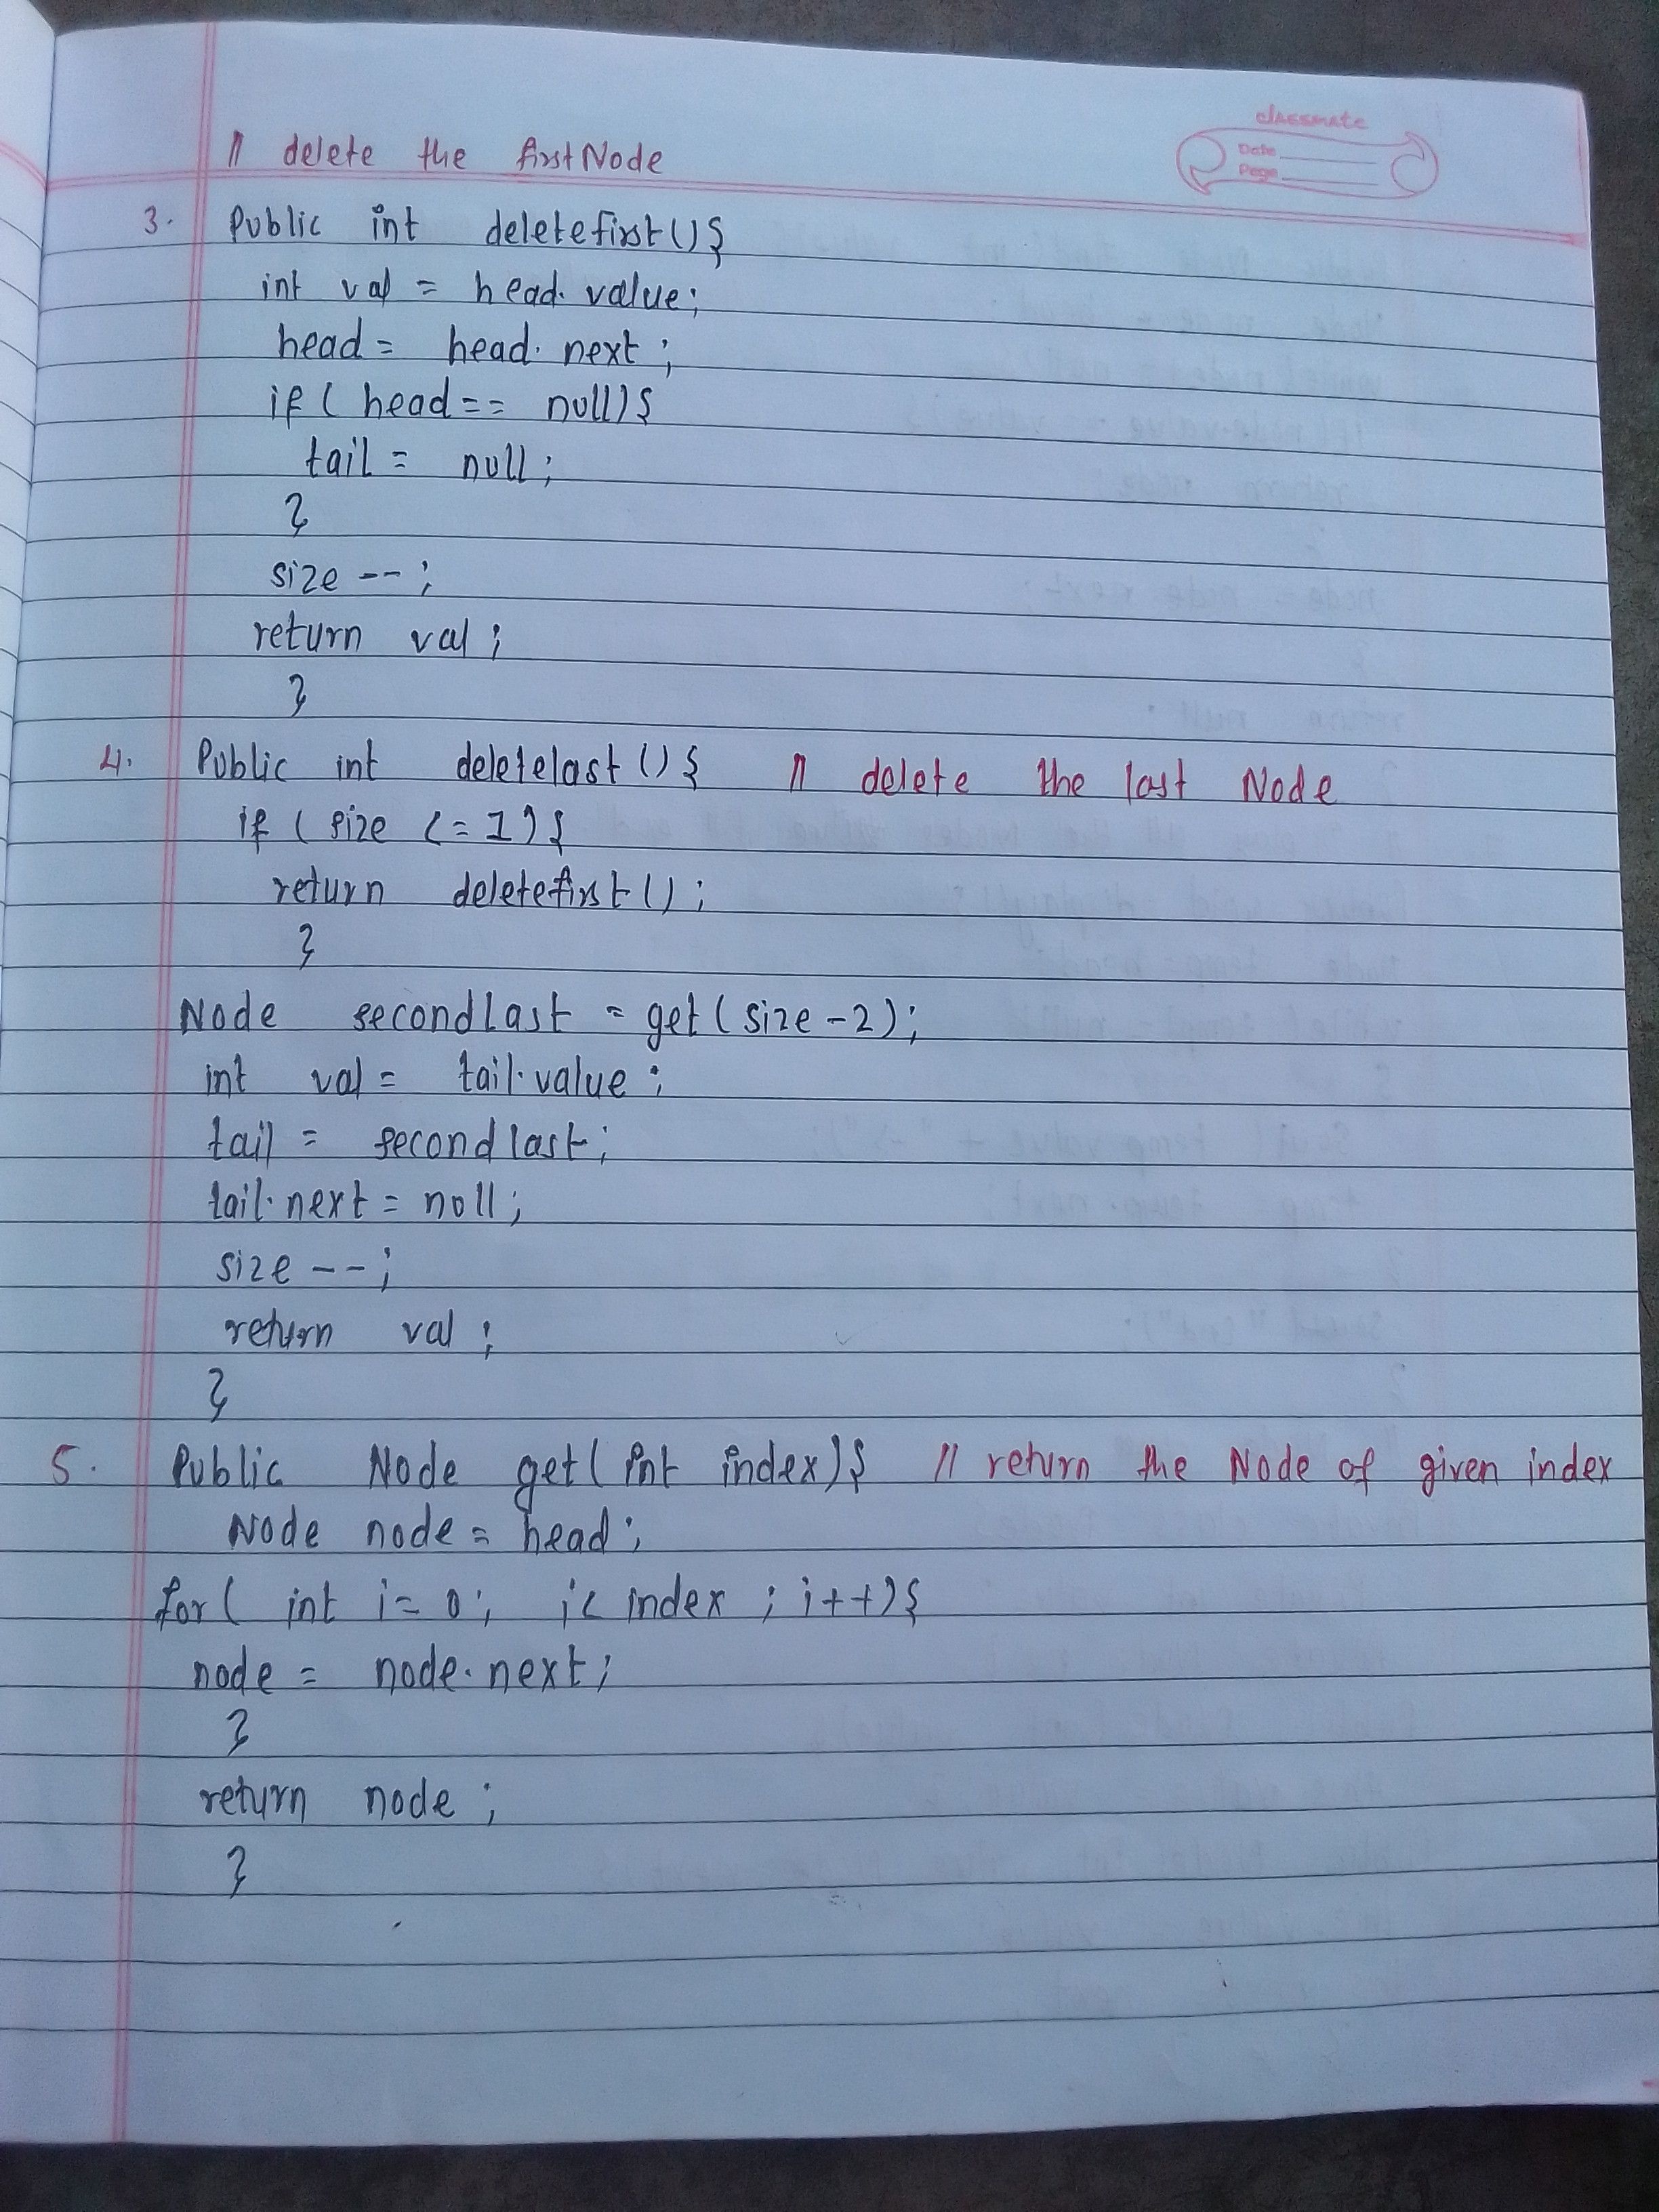 classmate
Date
Page
// delete the firstNode
3. Public int deletefirst(){
int val = head.value;
head = head.next;
if ( head == null){
tail = null;
}
size --;
return val;
}
4. Public int deletelast(){ // delete the last Node
if ( size <= 1){
return deletefirst();
}
Node secondLast = get(size-2);
int val = tail.value;
tail = secondlast;
tail.next = null;
size --;
return val;
}
5. Public Node get( int index){ // return the Node of given index
Node node = head;
for( int i = 0; i < index ; i++){
node = node.next;
}
return node;
}